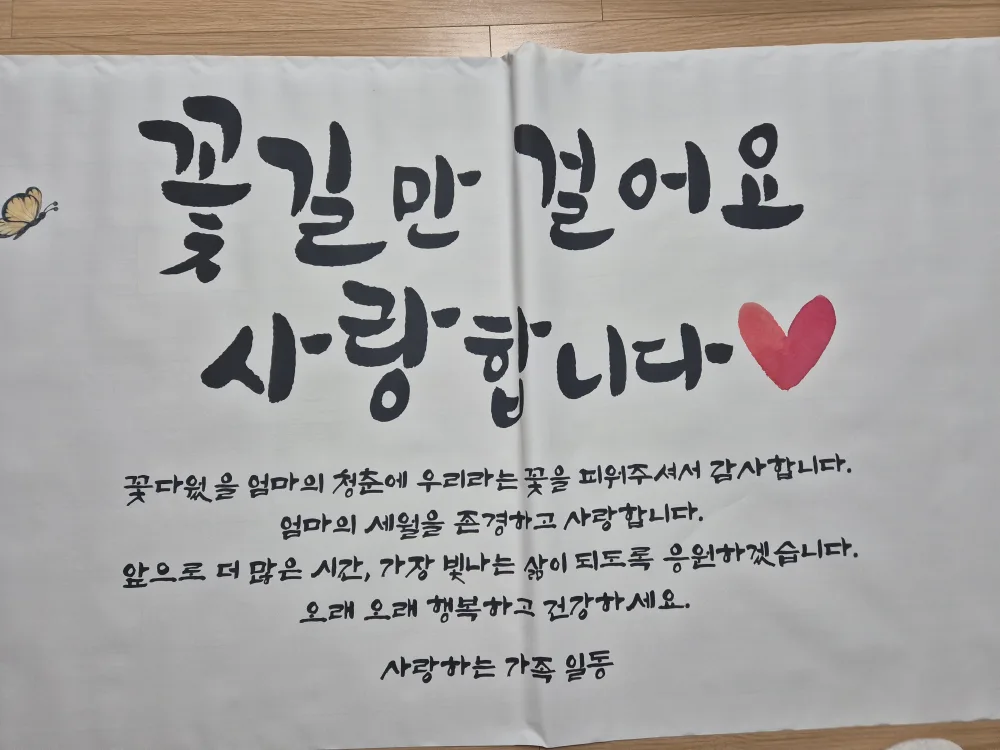 꽃길만 걸어요
사랑합니다
꽃다웠을 엄마의 청춘에 우리라는 꽃을 피워주셔서 감사합니다.
엄마의 세월을 존경하고 사랑합니다.
앞으로 더 많은 시간, 가장 빛나는 삶이 되도록 응원하겠습니다.
오래 오래 행복하고 건강하세요.
사랑하는 가족 일동